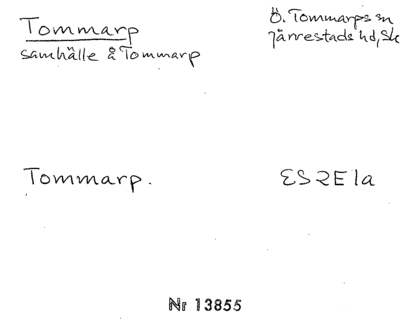 Tommarp
samhälle å Tommarp
Ö. Tommarps sn
Järrestads hd, Sk
Tommarp.
ES2E1a
Nr 13855